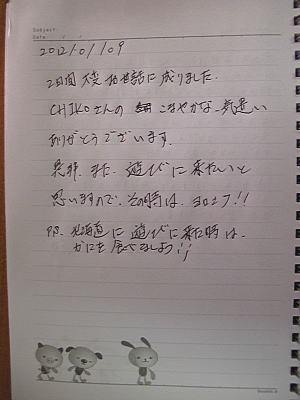 Subject:
Date / /
2012/01/09
2日間 大変 お世話に成りました.
CHIKOさんの こまやかな、気遣い
ありがとうございます.
是非、また、遊びに来たいと
思いますので、その時は、ヨロシク!!
P.S. 北海道に遊びに来た時は、
かにを食べましょう!!